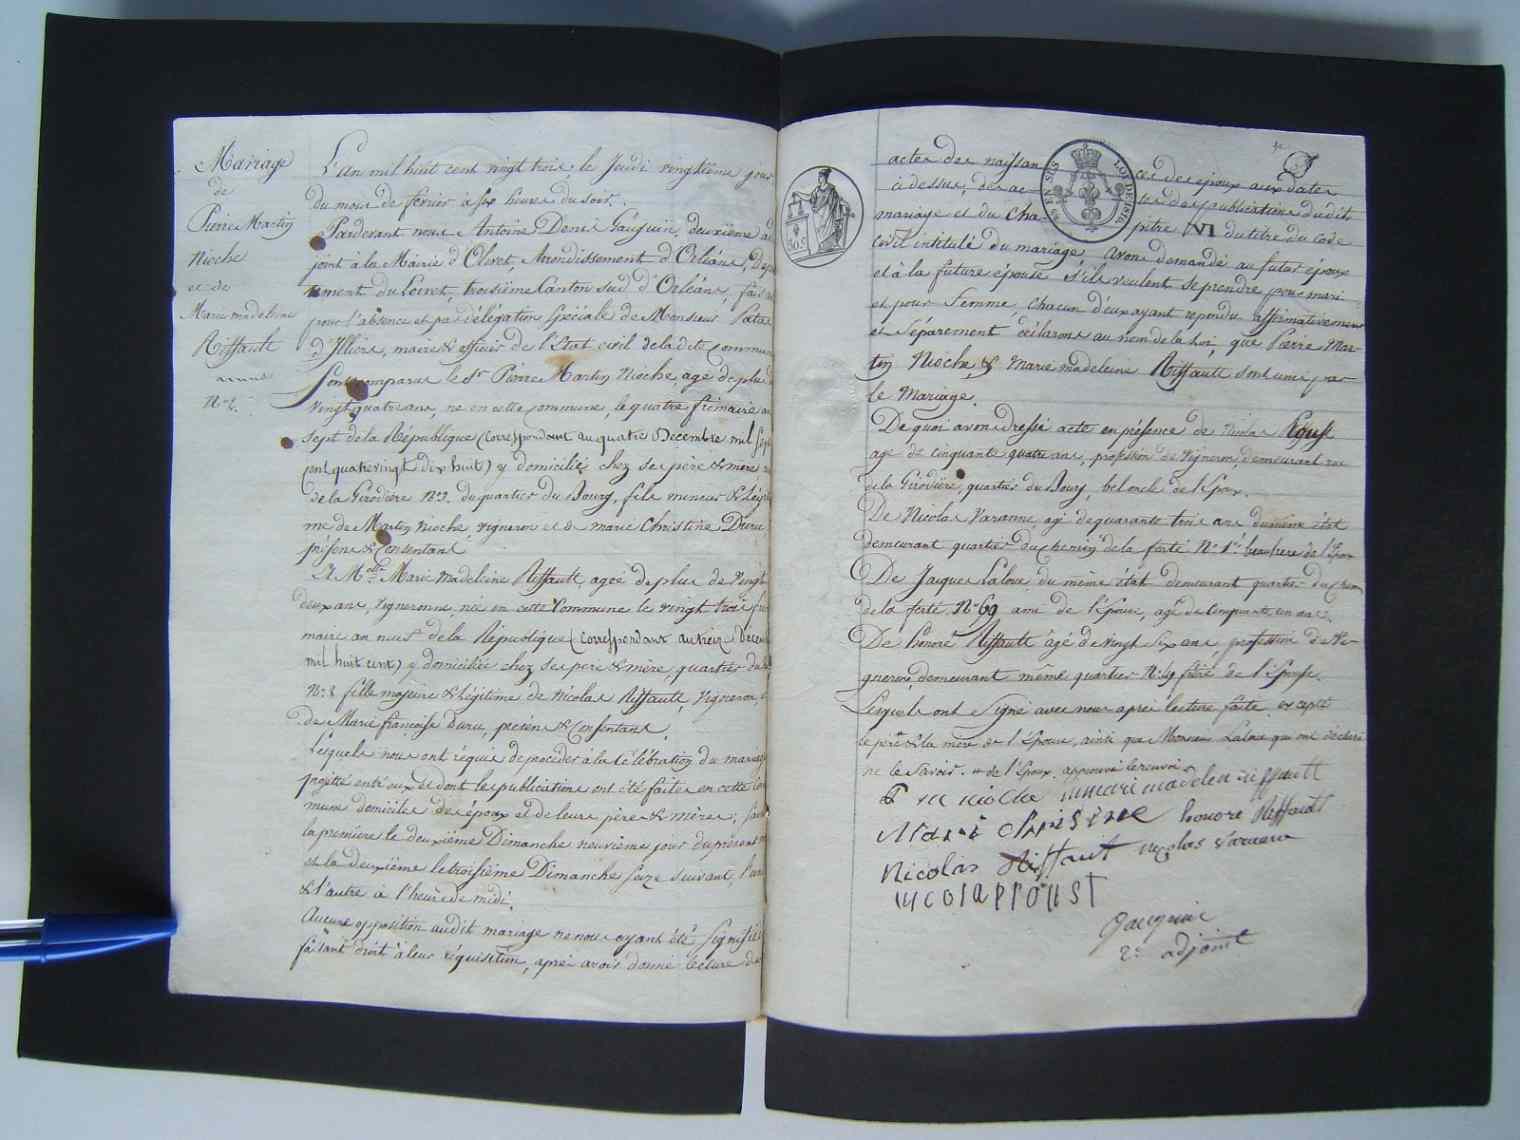 Mariage
de
Pierre Martin
Nioche
et de
Marie madeleine
Riffault
L'an mil huit cent vingt trois, le Jeudi vingtième jour
du mois de février à six heures du soir.
Pardevant nous Antoine Denis Gauguin, deuxième ad
joint à la Mairie d'Olivet, Arrondissement d'Orléans, Dépar
tement du Loiret, troisième Canton sud d'Orléans, faisant
pour l'absence et par délégation Spéciale de Monsieur
d'Illiers, maire & officier de l'état civil de la dite Commune
Sont comparus le Sr. Pierre Martin Nioche, agé de plus de
vingt quatre ans, né en cette Commune, le quatre frimaire an
sept de la République (correspondant au quatre Decembre mil Sept
cent quatrevingt dix huit) y domicilié chez ses père & mère rue
de la Girodière No. 2, du quartier du Bourg, fils mineur & Légiti
me de Martin Nioche, vigneron et de marie Christine Duru,
présens & Consentans
Et Melle. Marie madeleine Riffault agée de plus de vingt
deux ans, vigneronne née en cette Commune le vingt trois fri
maire an neuf de la République (correspondant au treize Decem
mil huit cent) y domiciliée chez ses père & mère, quartier du
No. 8 fille majeure & Légitime de Nicolas Riffault, Vigneron, &
de Marie françoise Duru, présens & Consentans.
Lesquels nous ont réquis de procéder à la Célébration du mariage
projetté entr'eux et dont les publications ont été faites en cette Com
mune domicile des époux et de leurs pères & mères; savoir
la première le deuxième Dimanche neuvième jour du présent mois
et la deuxième le troisième Dimanche seize suivant, l'une
& l'autre à l'heure de midi.
Aucune opposition au dit mariage ne nous ayant été Signifiée
faisant droit à leur réquisition, après avoir donné lecture des
actes des naissan
ces des époux aux dates
ci dessus, des ac
tes des publications du dit
mariage et du Cha
pitre VI du titre du Code
Civil intitulé du mariage, avons demandé au futur époux
et à la future épouse s'ils veulent se prendre pour mari
et pour Femme, chacun d'eux ayant répondu affirmativement
et Séparement déclarons au nom de la loi, que Pierre Mar-
tin Nioche & Marie madeleine Riffault sont unis par
le Mariage.
De quoi avons dressé acte en présence de Nicolas Proust
agé de cinquante quatre ans, profession de vigneron, demeurant rue
de la Girodière, quartier du Bourg, bel oncle de l'Epoux.
De Nicolas Varanne, agé de quarante trois ans du même état
demeurant quartier du chemin de la ferté No. 1er. beau frere de l'Epoux
De Jacques Laloue, du même état demeurant quartier du chemin
de la ferté No. 69 ami de l'épouse, agé de Cinquante un ans.
De honoré Riffault âgé de vingt Six ans profession de Vi-
gneron, demeurant même quartier No. 49 frère de l'Epouse.
Lesquels ont Signé avec nous après lecture faite, excepté
le père & la mère de l'épouse, ainsi que Monsieur Laloue qui ont déclaré
ne le Savoir. de l'Epoux. approuvé le renvoi
P m nioche marie madelene riffault
Marie christine honore Riffault
Nicolas Riffaut nicolas varanne
nicola proust
Gauguin
2e. adjoint
LOI DE 1816